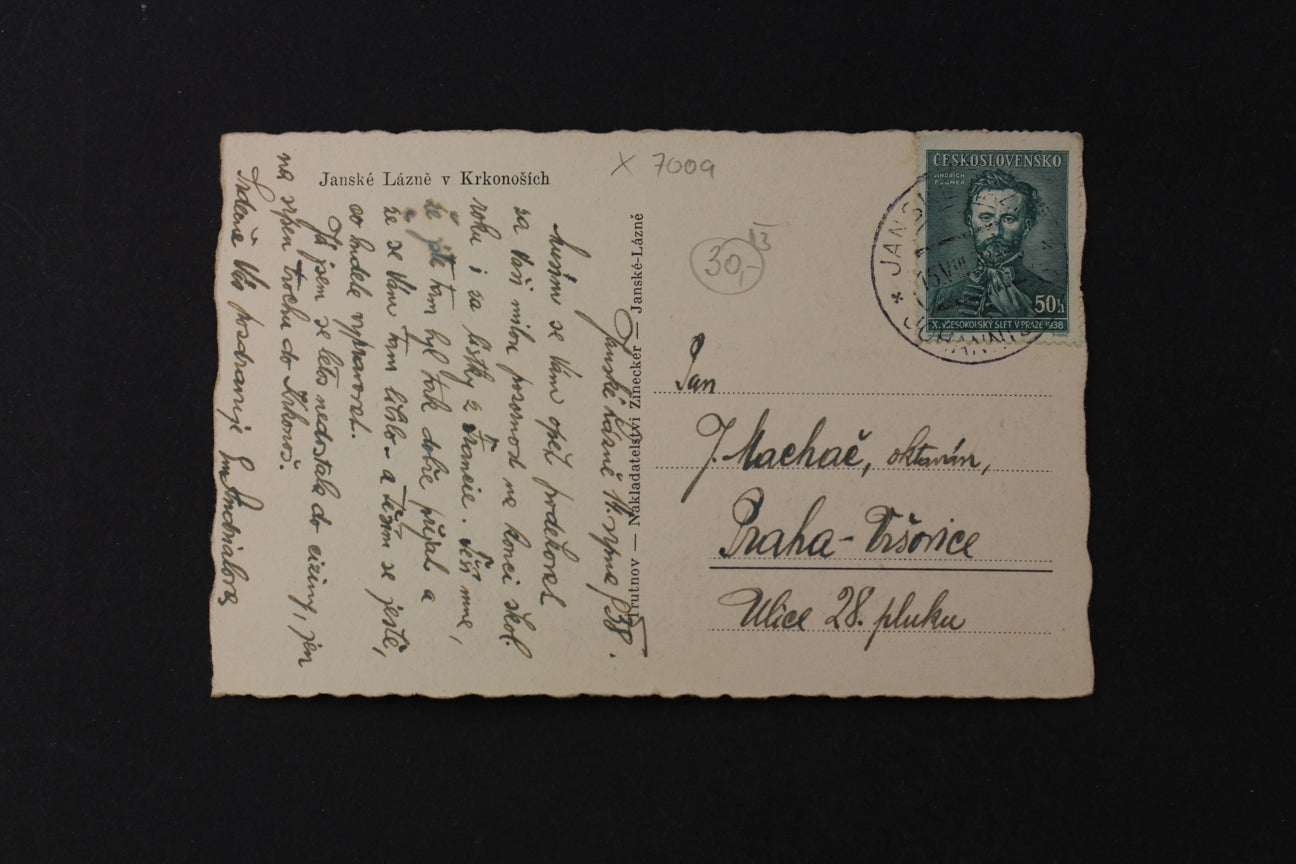 Janské Lázně v Krkonoších
X 7009
30,-
Trutnov — Nakladatelství Zinecker — Janské-Lázně
ČESKOSLOVENSKO
JINDŘICH
FÜGNER
50h
X. VŠESOKOLSKÝ SLET V PRAZE 1938
Janské Lázně 14. srpna 38.
Musím se Vám opět poděkovat
za Vaši milou pozornost na konci škol.
roku i za lístky z Francie. Těší mne,
že jste tam byl tak dobře přijat a
že se Vám tam líbilo a těším se ještě,
co budete vypravovat.
Já jsem se letos nedostala do ciziny, jen
na srpen trochu do Krkonoš.
Srdečně Vás pozdravuje
Pan
J. Machač, oktaván,
Praha-Vršovice
Ulice 28. pluku